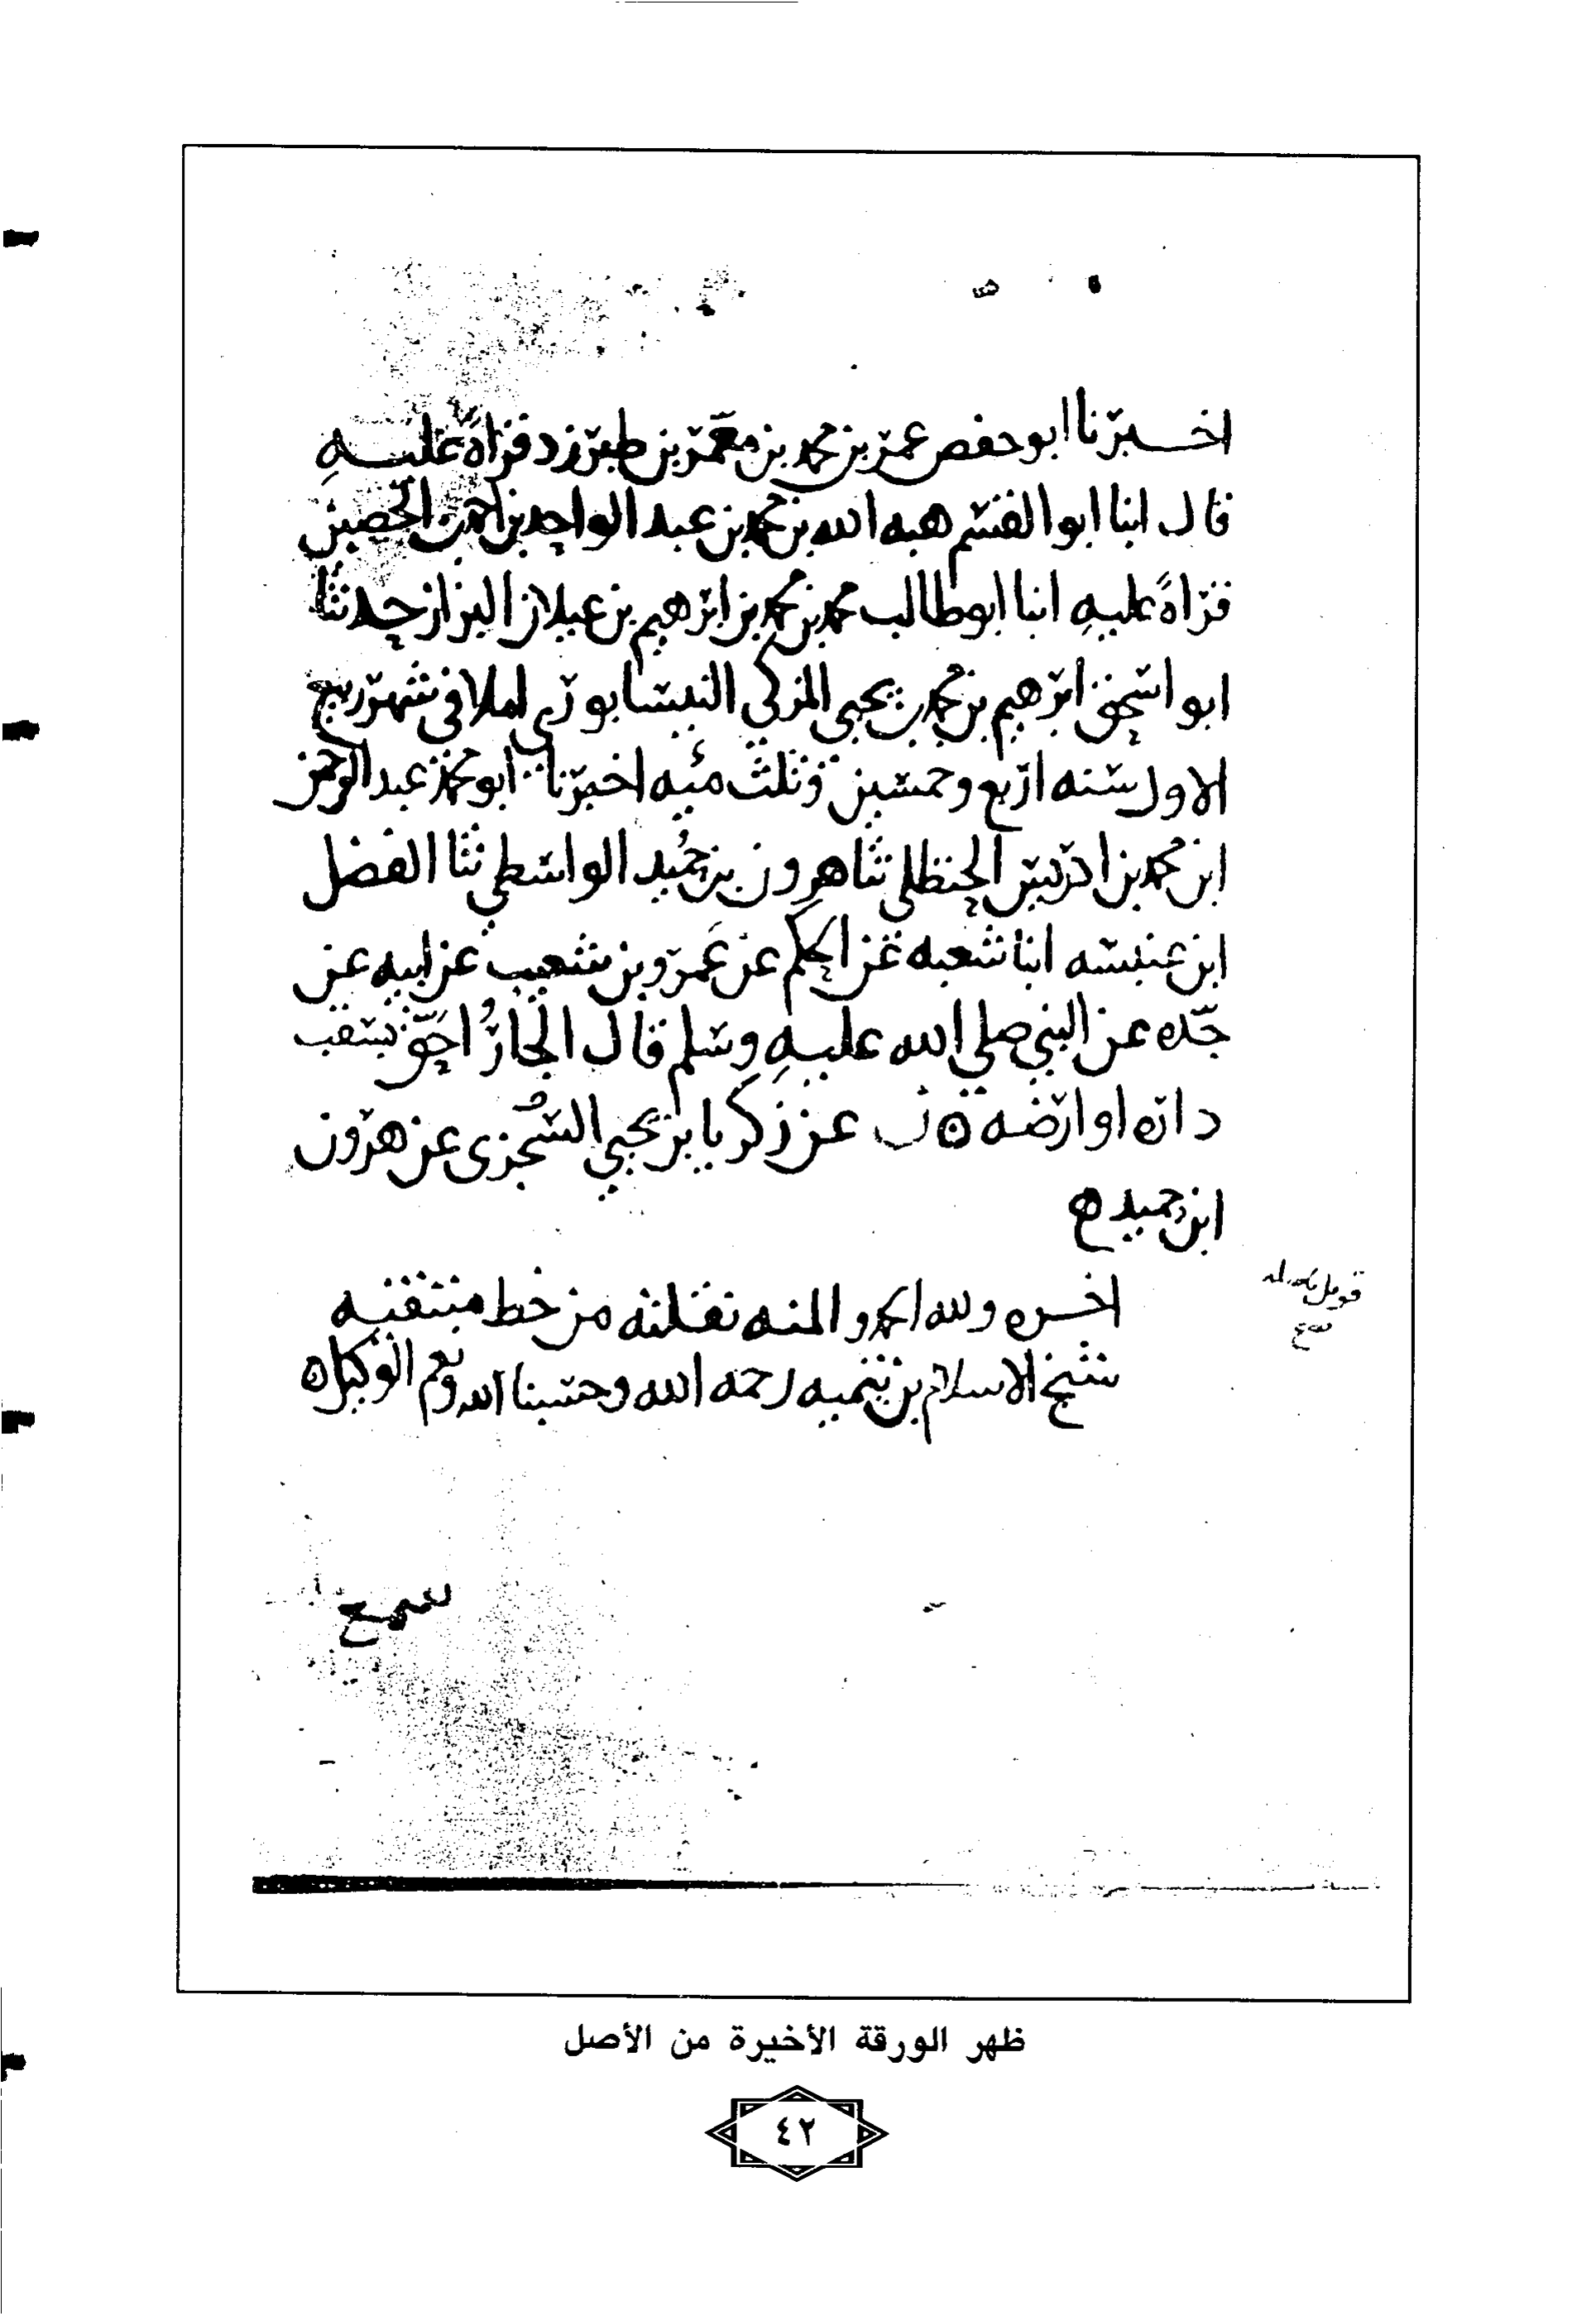 اخبرنا ابو حفص عمر بن محمد بن معمر بن طبرزد قراةً عليه
قال انبا ابو القسم هبه الله بن محمد بن عبد الواحد بن احمد بن الحصين
قراةً عليه انبا ابو طالب محمد بن محمد بن ابرهيم بن غيلان البزاز حدثنا
ابو اسحق ابرهيم بن محمد بن يحيى المزكي النيسابوري املا في شهر ربيع
الاول سنه اربع وخمسين وثلث مئه اخبرنا ابو محمد عبد الرحمن
ابن محمد بن ادريس الحنظلي ثنا هرون بن حُميد الواسطي ثنا الفضل
ابن عنبسه انبا شعبه عن الحكم عن عَمرو بن شعيب عن ابيه عن
جدّه عن النبي صلى الله عليه وسلم قال الجارُ احَقّ بسقب
داره او ارضه ن س عن زكريا بن يحيى السجزى عن هرون
ابن حميد ه
اخره ولله الحمد والمنه نقلته من خط منتقيه
شيخ الاسلام بن تيميه رحمه الله وحسبنا الله ونعم الوكيل ه
قوبل باصله
ظهر الورقة الأخيرة من الأصل
٤٢